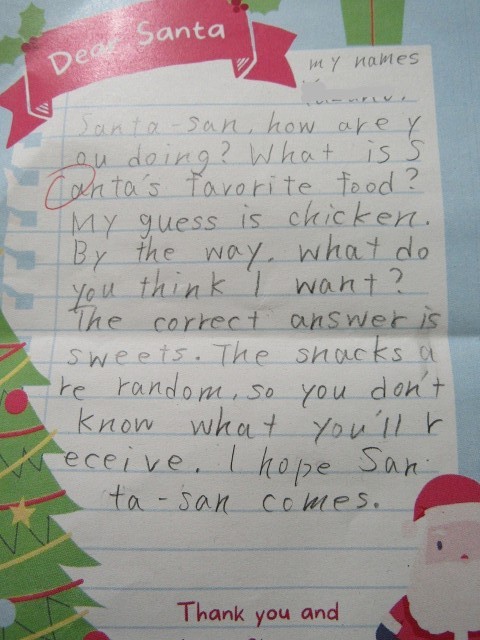 Dear Santa
my names
Santa-san, how are y
ou doing? What is S
anta's favorite food?
My guess is chicken.
By the way, what do
you think I want?
The correct answer is
sweets. The snacks a
re random, so you don't
know what you'll r
eceive. I hope San
ta-san comes.
Thank you and